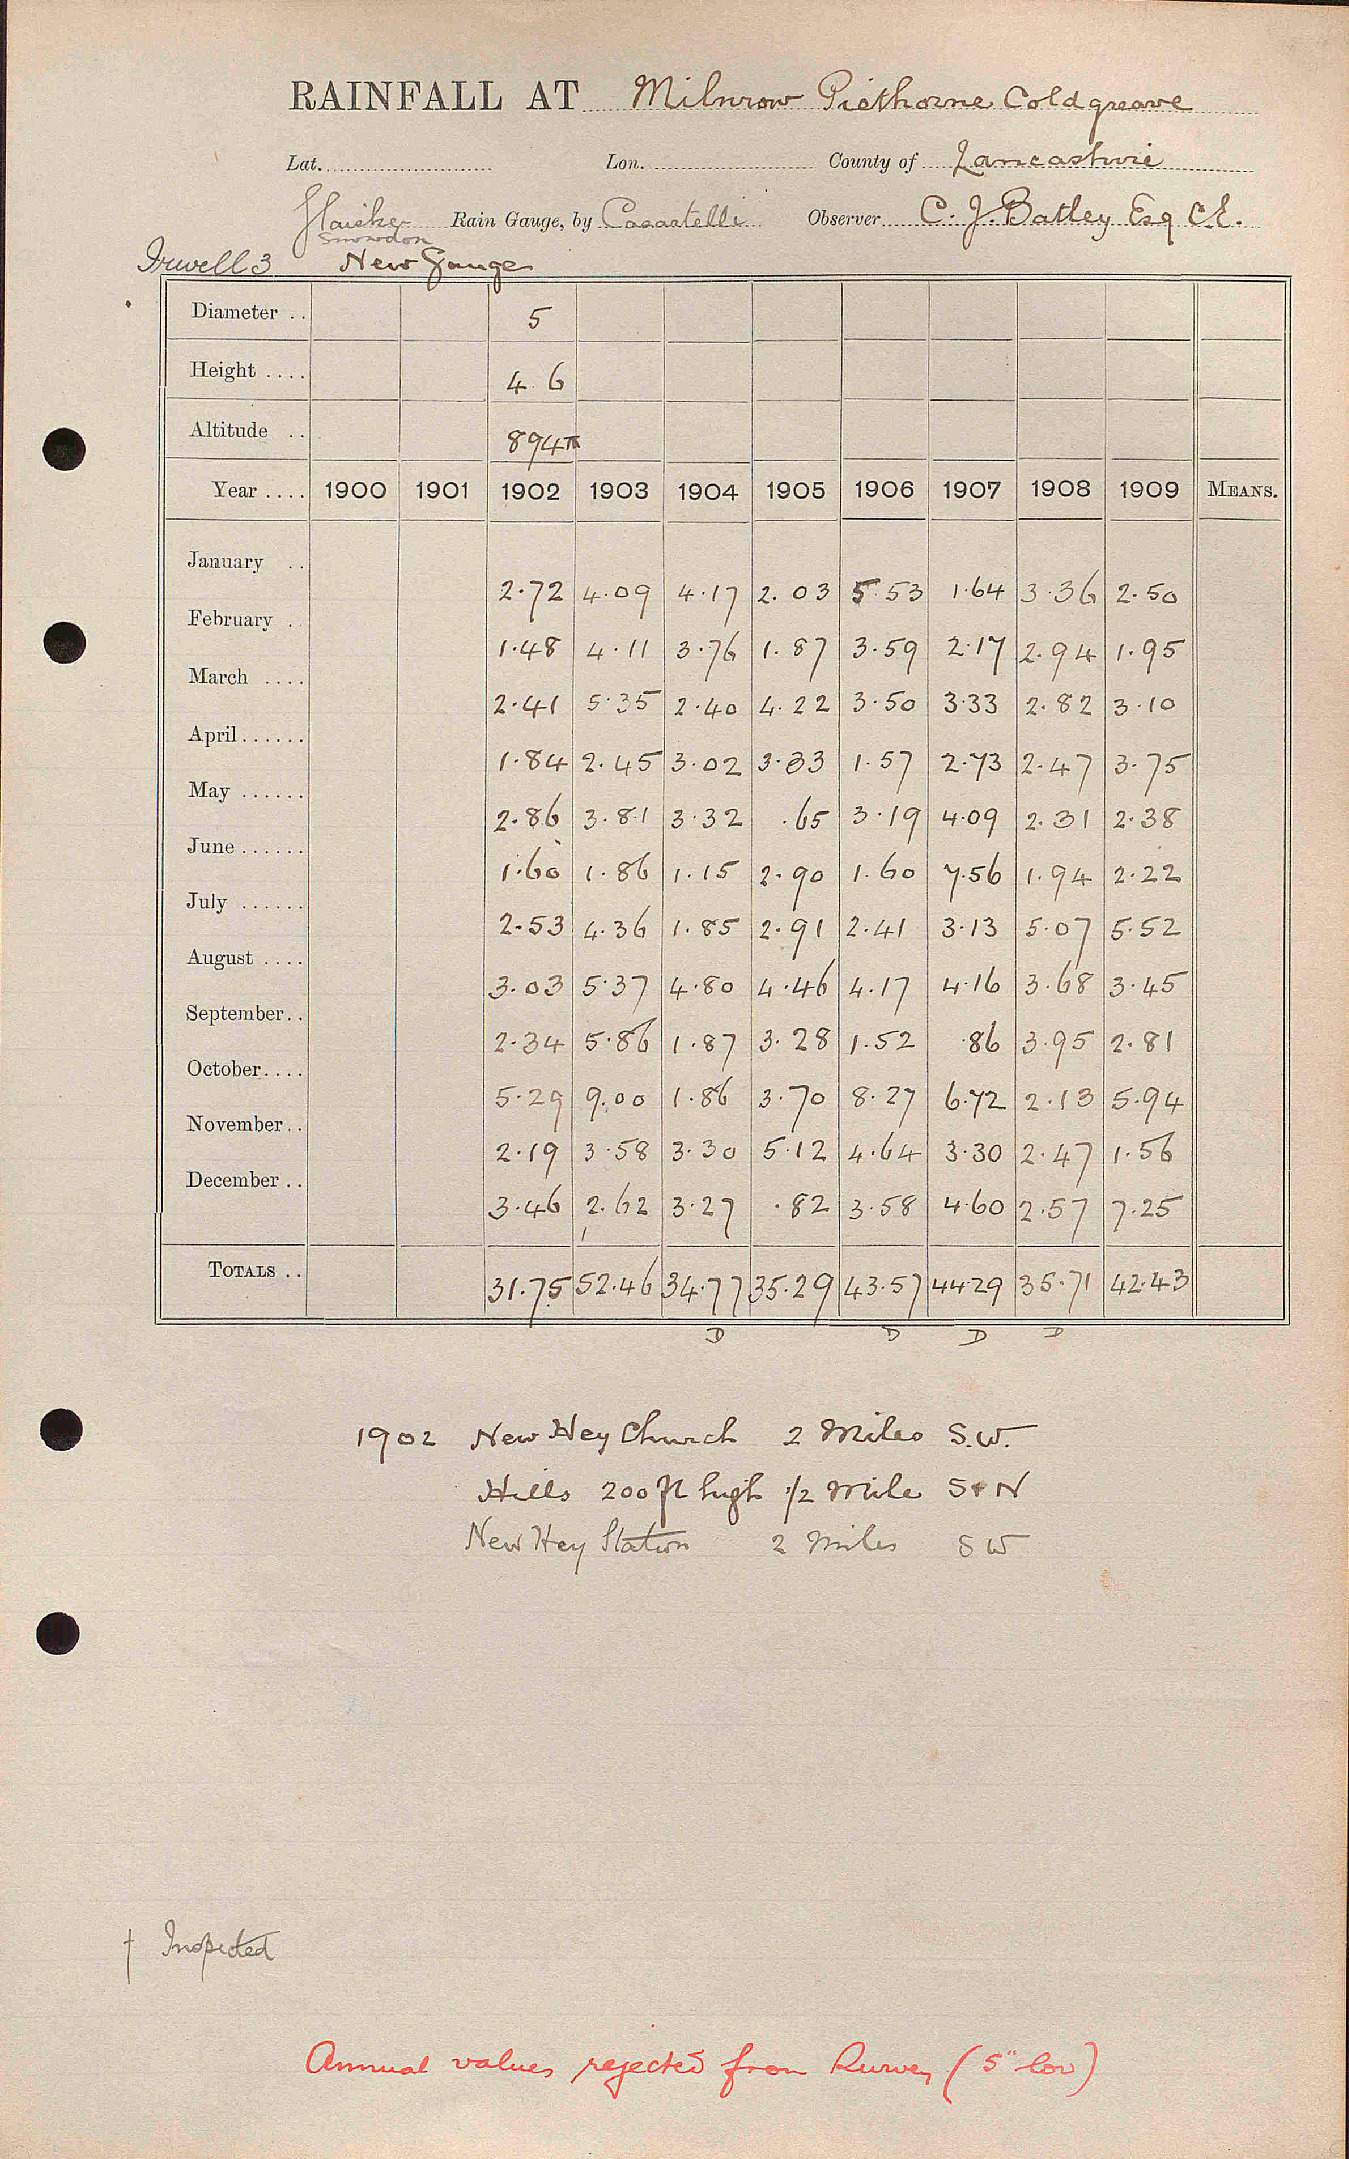 RAINFALL AT Milnrow Piethorne Coldgreave
Lat. Lon. County of Lancashire
Rain Gauge, by Casartelli Observer C. J. Batley Esq C.E.
Snowdon
Irwell 3 New Gauge
Diameter .. 5
Height .... 4 6
Altitude .. 894
Year .... 1900 1901 1902 1903 1904 1905 1906 1907 1908 1909 MEANS.
January .. 2.72 4.09 4.17 2.03 5.53 1.64 3.36 2.50
February . 1.48 4.11 3.76 1.87 3.59 2.17 2.94 1.95
March .... 2.41 5.35 2.40 4.22 3.50 3.33 2.82 3.10
April ...... 1.84 2.45 3.02 3.33 1.57 2.73 2.47 3.75
May ...... 2.86 3.81 3.32 .65 3.19 4.09 2.31 2.38
June ...... 1.60 1.86 1.15 2.90 1.60 7.56 1.94 2.22
July ...... 2.53 4.36 1.85 2.91 2.41 3.13 5.07 5.52
August .... 3.03 5.37 4.80 4.46 4.17 4.16 3.68 3.45
September .. 2.34 5.86 1.87 3.28 1.52 .86 3.95 2.81
October .... 5.29 9.00 1.86 3.70 8.27 6.72 2.13 5.94
November .. 2.19 3.58 3.30 5.12 4.64 3.30 2.47 1.56
December .. 3.46 2.62 3.27 .82 3.58 4.60 2.57 7.25
TOTALS .. 31.75 52.46 34.77 35.29 43.57 44.29 35.71 42.43
D D D D
1902 New Hey Church 2 Miles S.W.
Hills 200 ft high 1/2 mile S + N
New Hey Station 2 Miles S W
† Inspected
Annual values rejected from Survey (5" low)